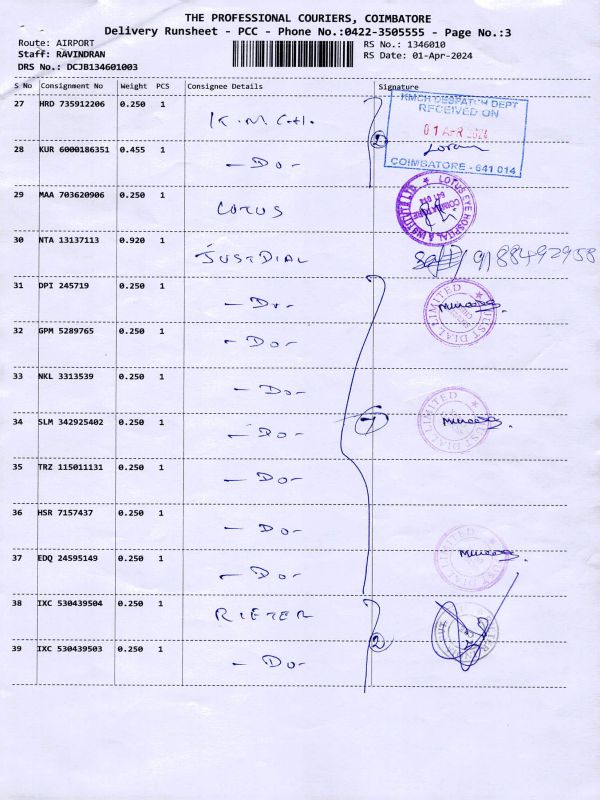 THE PROFESSIONAL COURIERS, COIMBATORE
Delivery Runsheet - PCC - Phone No.:0422-3505555 - Page No.:3
Route: AIRPORT
Staff: RAVINDRAN
DRS No.: DCJB134601003
RS No.: 1346010
RS Date: 01-Apr-2024
S No Consignment No Weight PCS Consignee Details Signature
27 HRD 735912206 0.250 1 K.M.C.H.
KMCH DESPATCH DEPT
RECEIVED ON
01 APR 2024
COIMBATORE - 641 014
28 KUR 6000186351 0.455 1 - Do -
2
29 MAA 703620906 0.250 1 LOTUS
LOTUS EYE HOSPITAL & INSTITUTE LTD
COIMBATORE
641 014
30 NTA 13137113 0.920 1 JUSTDIAL
9188492958
31 DPI 245719 0.250 1 - Do -
JUST DIAL LIMITED
32 GPM 5289765 0.250 1 - Do -
33 NKL 3313539 0.250 1 - Do -
34 SLM 342925402 0.250 1 - Do -
JUST DIAL LIMITED
35 TRZ 115011131 0.250 1 - Do -
36 HSR 7157437 0.250 1 - Do -
37 EDQ 24595149 0.250 1 - Do -
JUST DIAL LIMITED
38 IXC 530439504 0.250 1 RIETER
2
39 IXC 530439503 0.250 1 - Do -